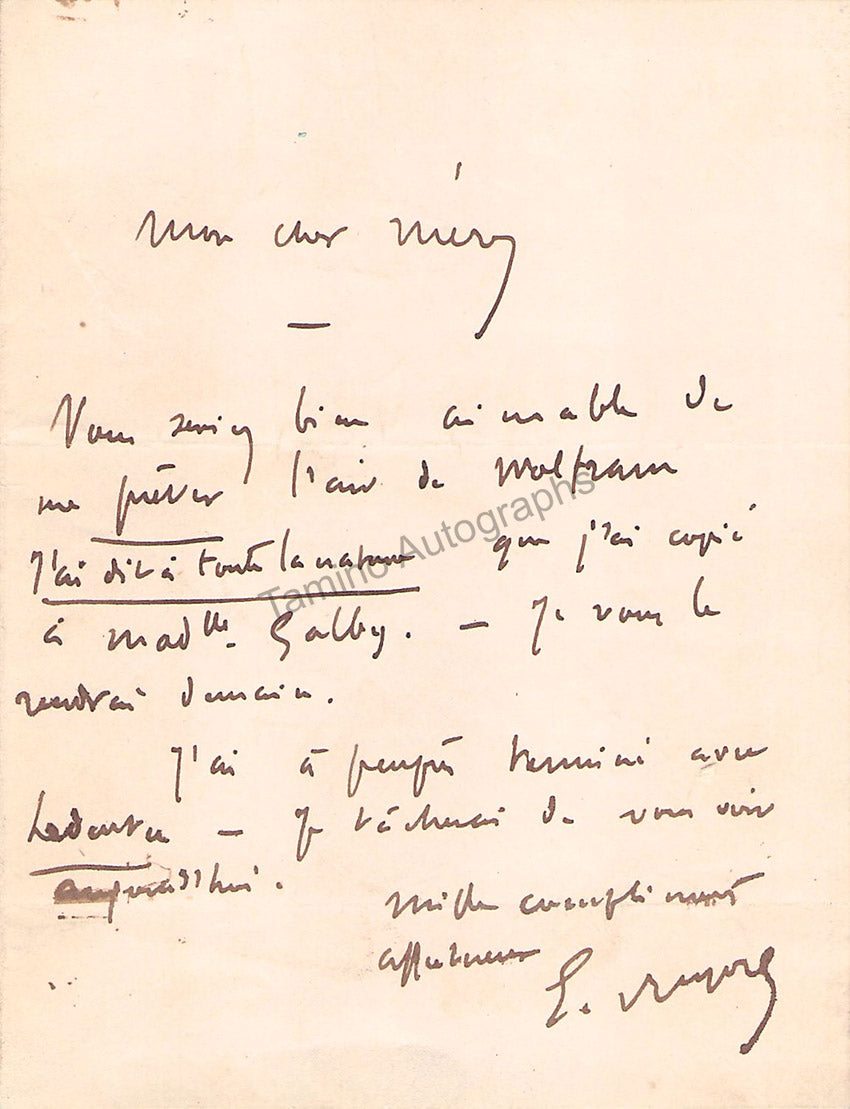 Mon cher Méry
—
Vous seriez bien aimable de
me prêter l'air de Wolfram
J'ai dit à toute la nature que j'ai copié
à Mad^lle. Galby. — Je vous le
rendrai demain.
J'ai à peuprès terminé avec
— Je tâcherai de vous voir
aujourd'hui.
Mille compliments
affectueux
E.
Tamino Autographs